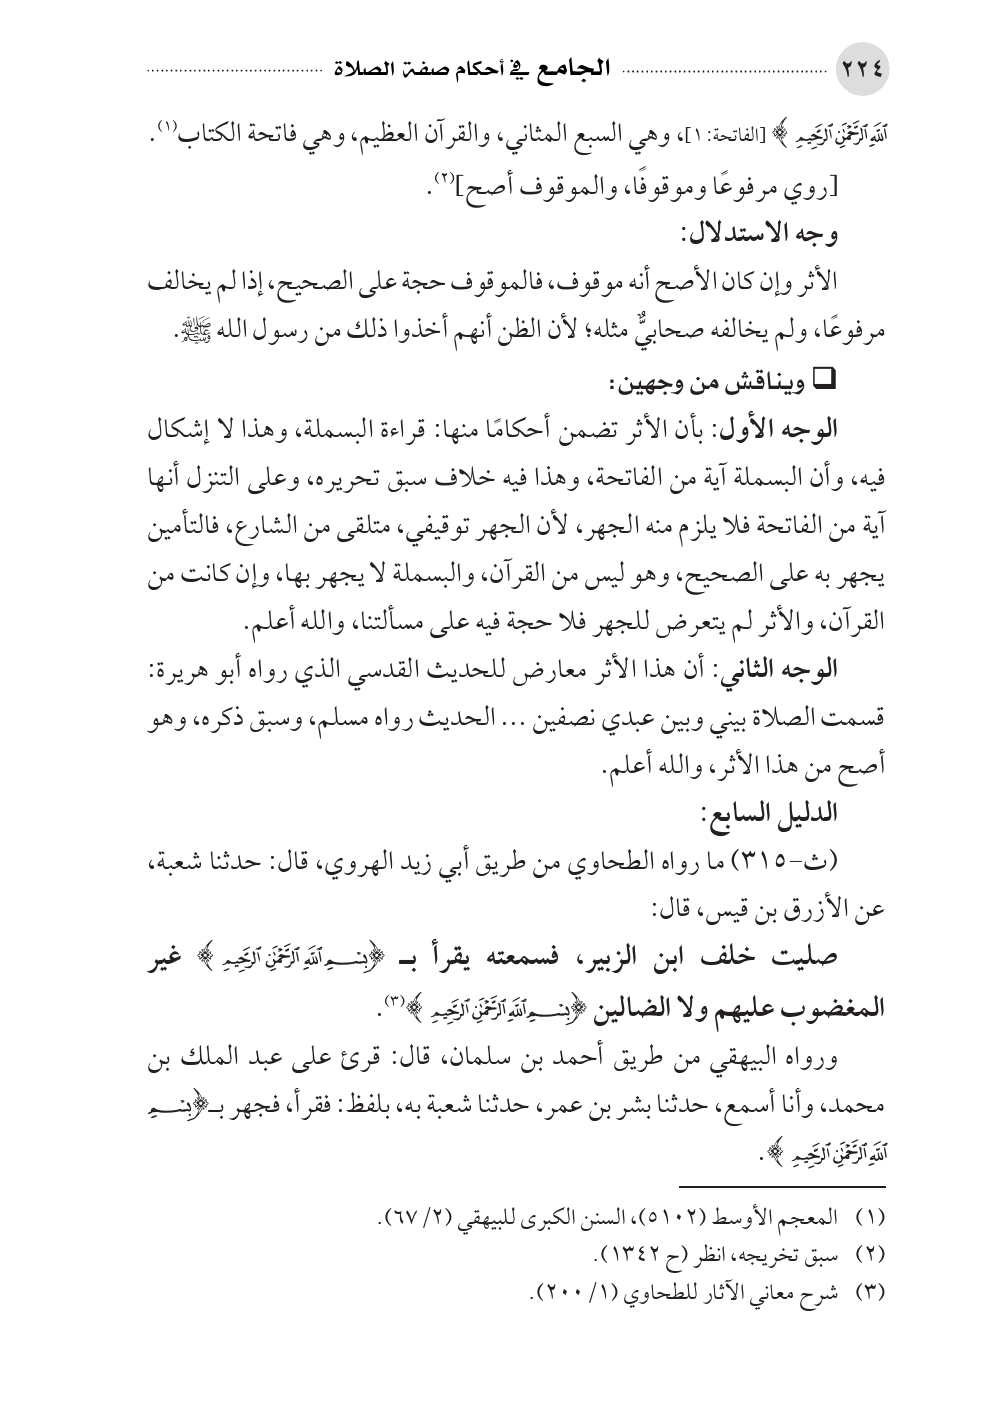 ٢٢٤ الجامع في أحكام صفة الصلاة
ٱللَّهِ ٱلرَّحْمَٰنِ ٱلرَّحِيمِ ﴾ [الفاتحة: ١]، وهي السبع المثاني، والقرآن العظيم، وهي فاتحة الكتاب(١).
[روي مرفوعًا وموقوفًا، والموقوف أصح](٢).
وجه الاستدلال:
الأثر وإن كان الأصح أنه موقوف، فالموقوف حجة على الصحيح، إذا لم يخالف
مرفوعًا، ولم يخالفه صحابيٌّ مثله؛ لأن الظن أنهم أخذوا ذلك من رسول الله ﷺ.
❏ ويناقش من وجهين:
الوجه الأول: بأن الأثر تضمن أحكامًا منها: قراءة البسملة، وهذا لا إشكال
فيه، وأن البسملة آية من الفاتحة، وهذا فيه خلاف سبق تحريره، وعلى التنزل أنها
آية من الفاتحة فلا يلزم منه الجهر، لأن الجهر توقيفي، متلقى من الشارع، فالتأمين
يجهر به على الصحيح، وهو ليس من القرآن، والبسملة لا يجهر بها، وإن كانت من
القرآن، والأثر لم يتعرض للجهر فلا حجة فيه على مسألتنا، والله أعلم.
الوجه الثاني: أن هذا الأثر معارض للحديث القدسي الذي رواه أبو هريرة:
قسمت الصلاة بيني وبين عبدي نصفين ... الحديث رواه مسلم، وسبق ذكره، وهو
أصح من هذا الأثر، والله أعلم.
الدليل السابع:
(ث-٣١٥) ما رواه الطحاوي من طريق أبي زيد الهروي، قال: حدثنا شعبة،
عن الأزرق بن قيس، قال:
صليت خلف ابن الزبير، فسمعته يقرأ بـ ﴿بِسْمِ ٱللَّهِ ٱلرَّحْمَٰنِ ٱلرَّحِيمِ ﴾ غير
المغضوب عليهم ولا الضالين ﴿بِسْمِ ٱللَّهِ ٱلرَّحْمَٰنِ ٱلرَّحِيمِ ﴾(٣).
ورواه البيهقي من طريق أحمد بن سلمان، قال: قرئ على عبد الملك بن
محمد، وأنا أسمع، حدثنا بشر بن عمر، حدثنا شعبة به، بلفظ: فقرأ، فجهر بـ﴿بِسْمِ
ٱللَّهِ ٱلرَّحْمَٰنِ ٱلرَّحِيمِ ﴾.
(١) المعجم الأوسط (٥١٠٢)، السنن الكبرى للبيهقي (٢/ ٦٧).
(٢) سبق تخريجه، انظر (ح ١٣٤٢).
(٣) شرح معاني الآثار للطحاوي (١/ ٢٠٠).